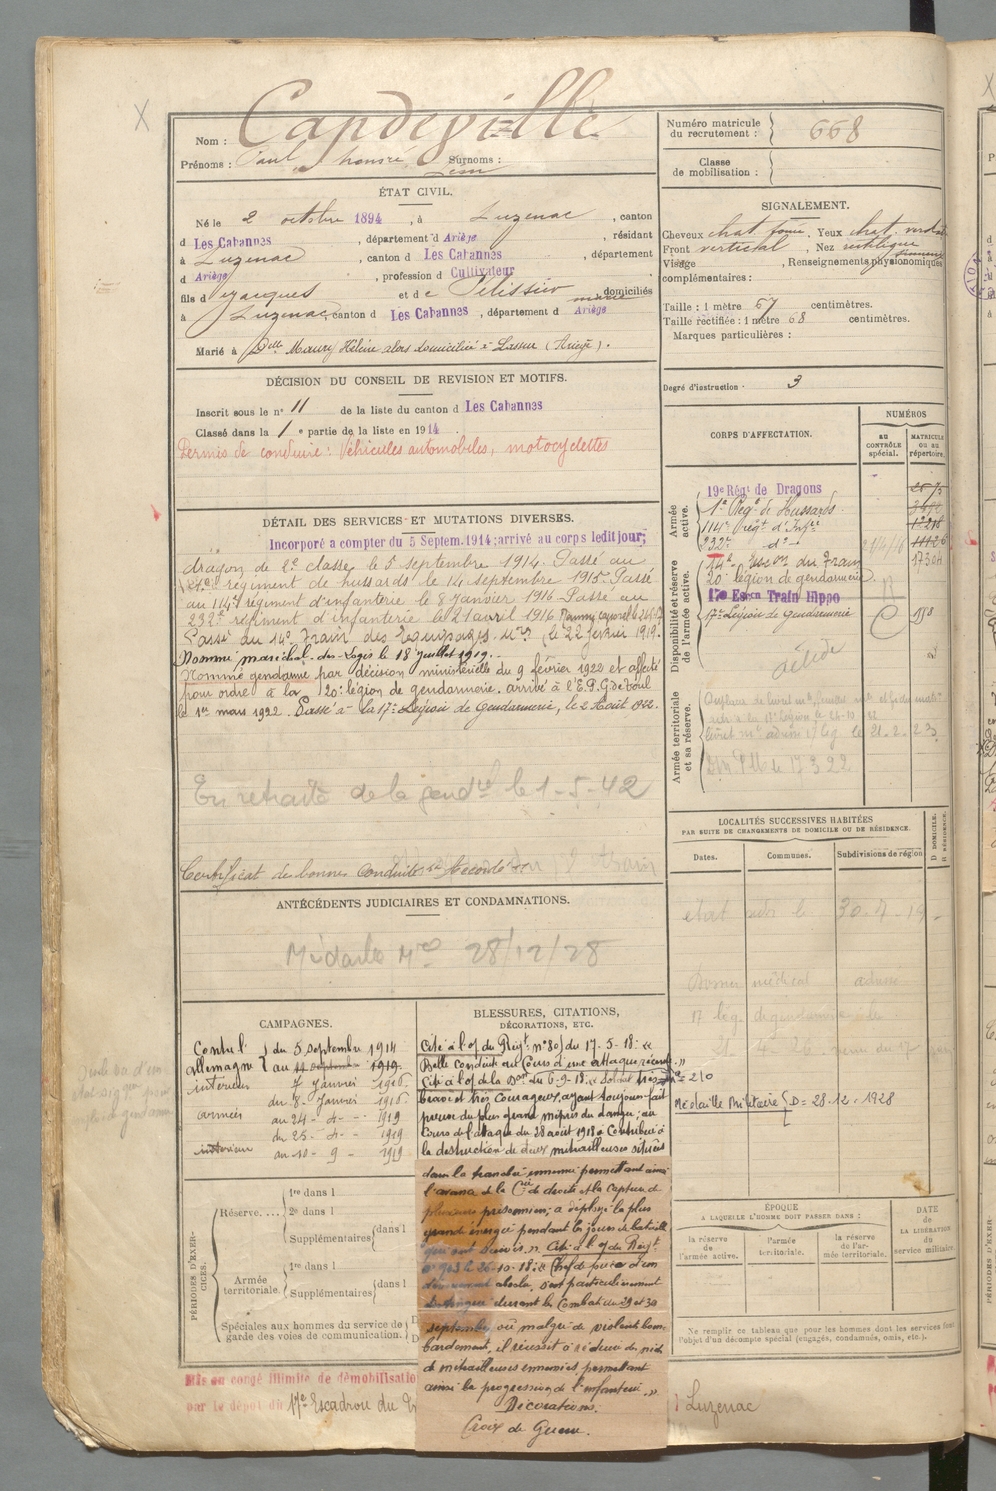 Nom : Capdeville
Prénoms : Paul Honoré Surnoms :
Numéro matricule du recrutement : 668
Classe de mobilisation :
ÉTAT CIVIL.
Né le 2 octobre 1894, à Luzenac, canton
d Les Cabannes, département d Ariège, résidant
à Luzenac, canton d Les Cabannes, département
d Ariège, profession d Cultivateur
fils d Jacques et de Pélissier Marie domiciliés
à Luzenac canton d Les Cabannes, département d Ariège
Marié à Delle Maury Hélène alors domiciliée à Lassur (Ariège).
SIGNALEMENT.
Cheveux chat. foncé, Yeux chat. verdat
Front vertical, Nez rectiligne
Visage , Renseignements physionomiques
complémentaires :
Taille : 1 mètre 67 centimètres.
Taille rectifiée : 1 mètre 68 centimètres.
Marques particulières :
Degré d'instruction . 3
DÉCISION DU CONSEIL DE REVISION ET MOTIFS.
Inscrit sous le n° 11 de la liste du canton d Les Cabannes
Classé dans la 1e partie de la liste en 1914.
Permis de conduire : Véhicules automobiles, motocyclettes
DÉTAIL DES SERVICES ET MUTATIONS DIVERSES.
Incorporé a compter du 5 Septem. 1914; arrivé au corps ledit jour;
dragon de 2e classe le 5 septembre 1914. Passé au
régiment de hussards le 14 septembre 1915. Passé
au 114e régiment d'infanterie le 8 Janvier 1916. Passé au
232e régiment d'infanterie le 21 avril 1916
Passé au 14e Train des Equipages Mres le 22 février 1919.
Nommé maréchal-des-Logis le 18 juillet 1919.
Nommé gendarme par décision ministérielle du 9 février 1922 et affecté
pour ordre à la 20e légion de gendarmerie. arrivé à l'E.P.G. de Toul
le 1er mars 1922. Passé à la 17e Légion de Gendarmerie, le 2 Août 1922.
En retraite de la gendie le 1-5-42
Certificat de bonne Conduite accordé
ANTÉCÉDENTS JUDICIAIRES ET CONDAMNATIONS.
Médaille Mre 28/12/28
CORPS D'AFFECTATION.
NUMÉROS
AU CONTRÔLE spécial.
MATRICULE OU AU répertoire.
Armée active.
19e Régt de Dragons
1er Régt de Hussards
114e Régt d'Infrie
232e do
14e Escon du Train 17304
Disponibilité et réserve de l'armée active.
20e légion de gendarmerie
17e Escon Train Hippo
17e Légion de Gendarmerie
Armée territoriale et sa réserve.
LOCALITÉS SUCCESSIVES HABITÉES
PAR SUITE DE CHANGEMENTS DE DOMICILE OU DE RÉSIDENCE.
Dates.
Communes.
Subdivisions de région
D. DOMICILE.
R. RÉSIDENCE.
Dossier médical
CAMPAGNES.
Contre l' du 5 septembre 1914
Allemagne au 11 septembre 1919
intérieur 7 Janvier 1916
du 8 Janvier 1916
armées au 24 - do - 1919
du 25 - do - 1919
intérieur au 10 - 9 - 1919
BLESSURES, CITATIONS,
DÉCORATIONS, ETC.
Cité à l'o/ du Régt n° 80 du 17-5-18 : «
Belle conduite au Cours d'une attaque récente. »
Cité à l'o/ de la Don du 6-9-18 « Soldat très n° 210
brave et très courageux, ayant toujours fait
preuve du plus grand mépris du danger; au
Cours de l'attaque du 28 août 1918 a Contribué à
la destruction de deux mitrailleuses situées
dans la tranchée ennemie permettant ainsi
l'avance de la Cie de droite et la Capture de
plusieurs prisonniers; a déployé la plus
grande énergie pendant les jours de bataille
qui ont suivi ». Cité à l'o/ du Régt
n° 913 le 26-10-18 : « Chef de pièce d'un
dévouement absolu, s'est particulièrement
distingué durant les Combats du 29 et 30
septembre où malgré de violents bom-
bardements, il réussit à réduire des nids
de mitrailleuses ennemies permettant
ainsi la progression de l'infanterie. »
Décorations.
Croix de Guerre.
Médaille Militaire D = 28.12.1928
PÉRIODES D'EXERCICES.
Réserve....
1re dans l
2e dans l
Supplémentaires dans l
Armée territoriale.
1re dans l
Supplémentaires dans l
Spéciales aux hommes du service de
garde des voies de communication.
ÉPOQUE
A LAQUELLE L'HOMME DOIT PASSER DANS :
la réserve de l'armée active.
l'armée territoriale.
la réserve de l'armée territoriale.
DATE de LA LIBÉRATION du service militaire.
Ne remplir ce tableau que pour les hommes dont les services font
l'objet d'un décompte spécial (engagés, condamnés, omis, etc.).
Mis en congé illimité de démobilisatio
par le dépot du 17e Escadron du
Luzenac